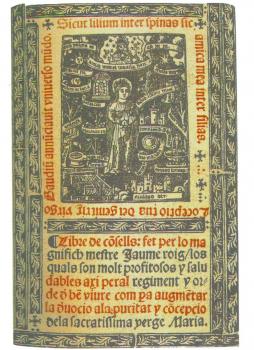 Sicut lilium inter spinas sic
amica mea inter filias.
Gaudiũ annũciavit vniverso mũdo.
Cõceptio tua dei genitrix virgo
Libre de cõsells: fet per lo ma
gnifich mestre Jaume roig/los
quals son molt profitosos y salu
dables axi peral regiment y or
de ð bẽ viure com pa augmẽtar
la ðuocio ala puritat y cõcepcio
dela sacratissima verge Maria.